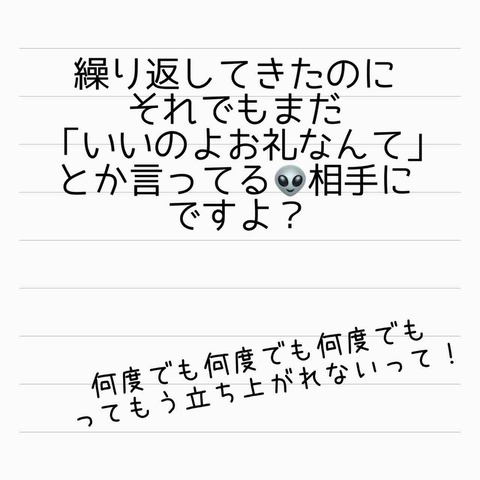 繰り返してきたのに
それでもまだ
「いいのよお礼なんて」
とか言ってる👽相手に
ですよ？
何度でも何度でも何度でも
ってもう立ち上がれないって！